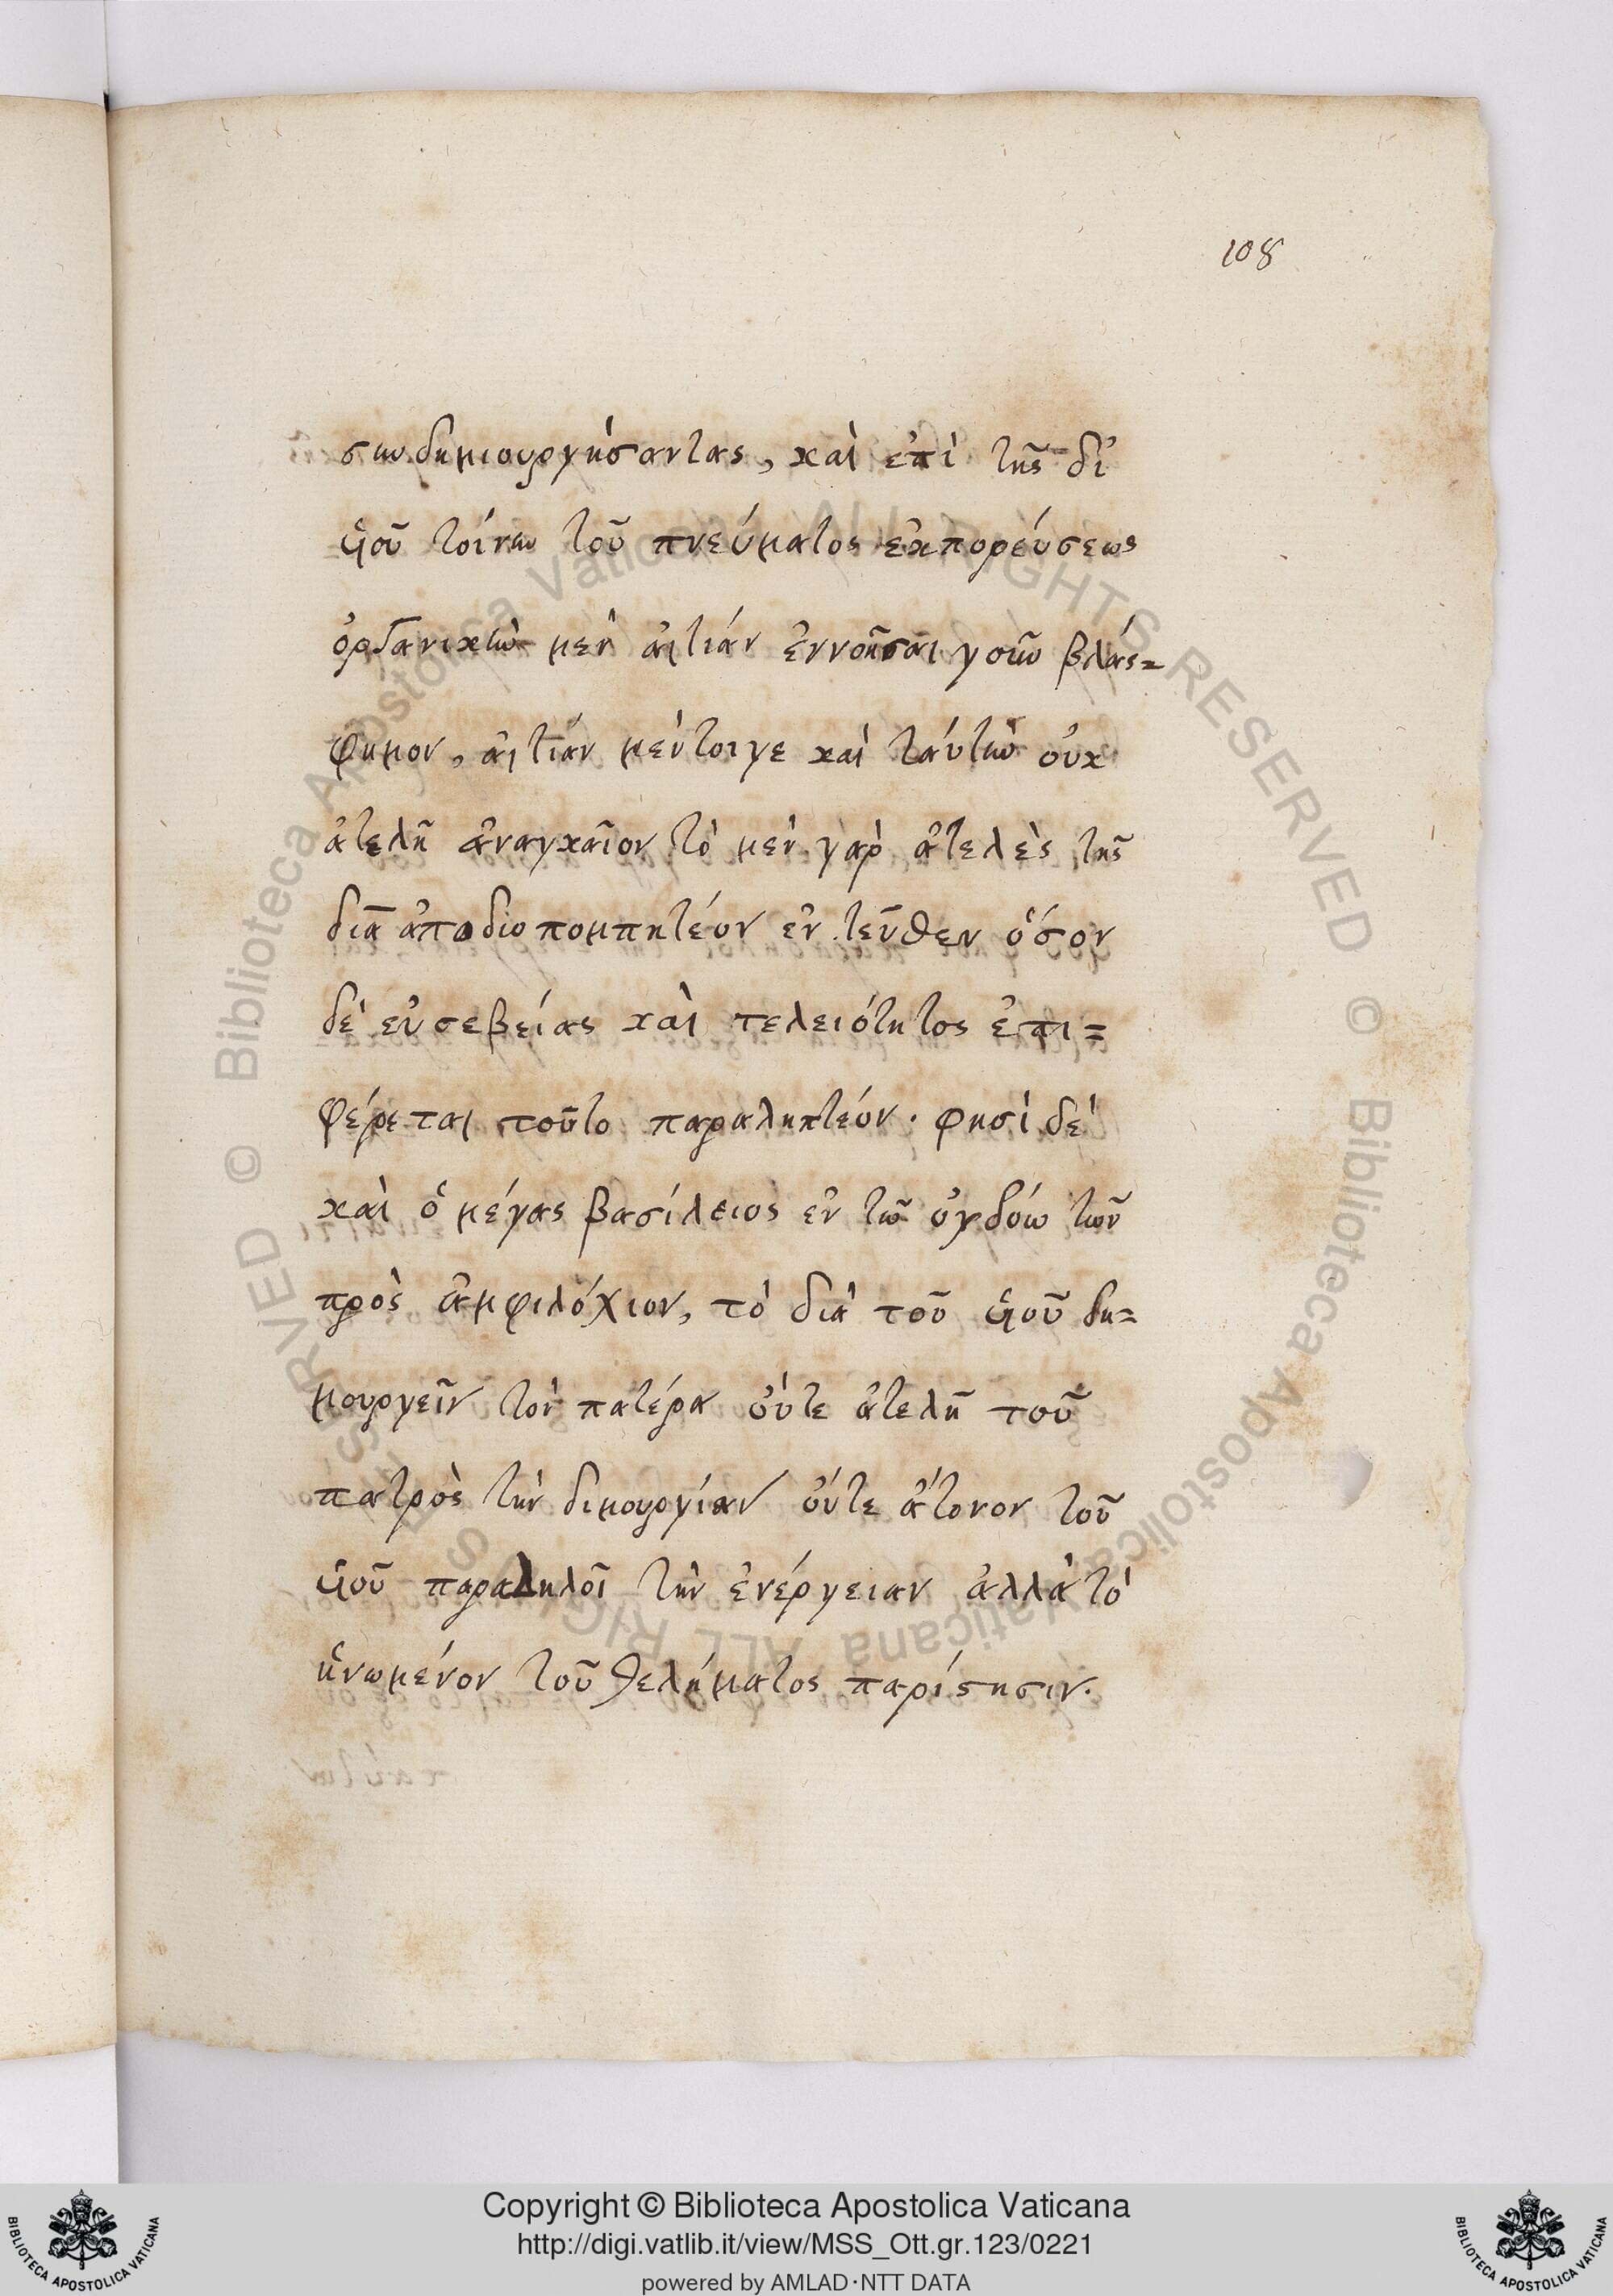 108
συνδημιουργήσαντας, καὶ ἐπὶ τῆς δι'
ὑιοῦ τοίνυν τοῦ πνεύματος ἐκπορεύσεως
ὀργανικὴν μὲν ἀιτίαν ἐννοῆσαι γοῦν βλάσ=
φημον, ἀιτίαν μέντοιγε καὶ ταύτην οὐκ
ἀτελῆ ἀναγκαῖον τὸ μὲν γὰρ ἀτελὲς τῆς
διὰ ἀποδιοπομπητέον ἐντεῦθεν ὅσον
δὲ εὐσεβείας καὶ τελειότητος ἐπι=
φέρεται τοῦτο παραληπτέον· φησὶ δὲ
καὶ ὁ μέγας βασίλειος ἐν τῶ ὀγδόω τῶν
πρὸς ἀμφιλόχιον, τὸ διὰ τοῦ ὑιοῦ δη=
μουργεῖν τὸν πατέρα ὄυτε ἀτελῆ τοῦ
πατρὸς τὴν διμουργίαν ὄυτε ἄτονον τοῦ
ὑιοῦ παραδηλοῖ τὴν ἐνέργειαν ἀλλὰ τὸ
ἡνωμένον τοῦ θελήματος παρίστησιν.
Copyright © Biblioteca Apostolica Vaticana
http://digi.vatlib.it/view/MSS_Ott.gr.123/0221
powered by AMLAD·NTT DATA
BIBLIOTECA APOSTOLICA VATICANA
BIBLIOTECA APOSTOLICA VATICANA
© Biblioteca Apostolica Vaticana ALL RIGHTS RESERVED © Biblioteca Apostolica Vaticana ALL RIGHTS RESERVED